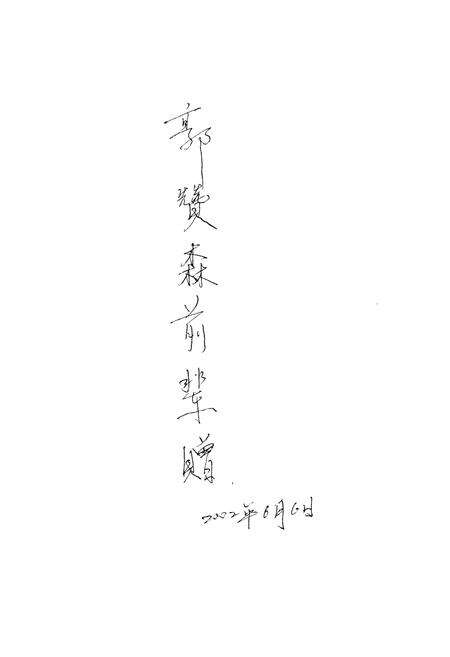 郭赞森前辈赠
2002年6月6日